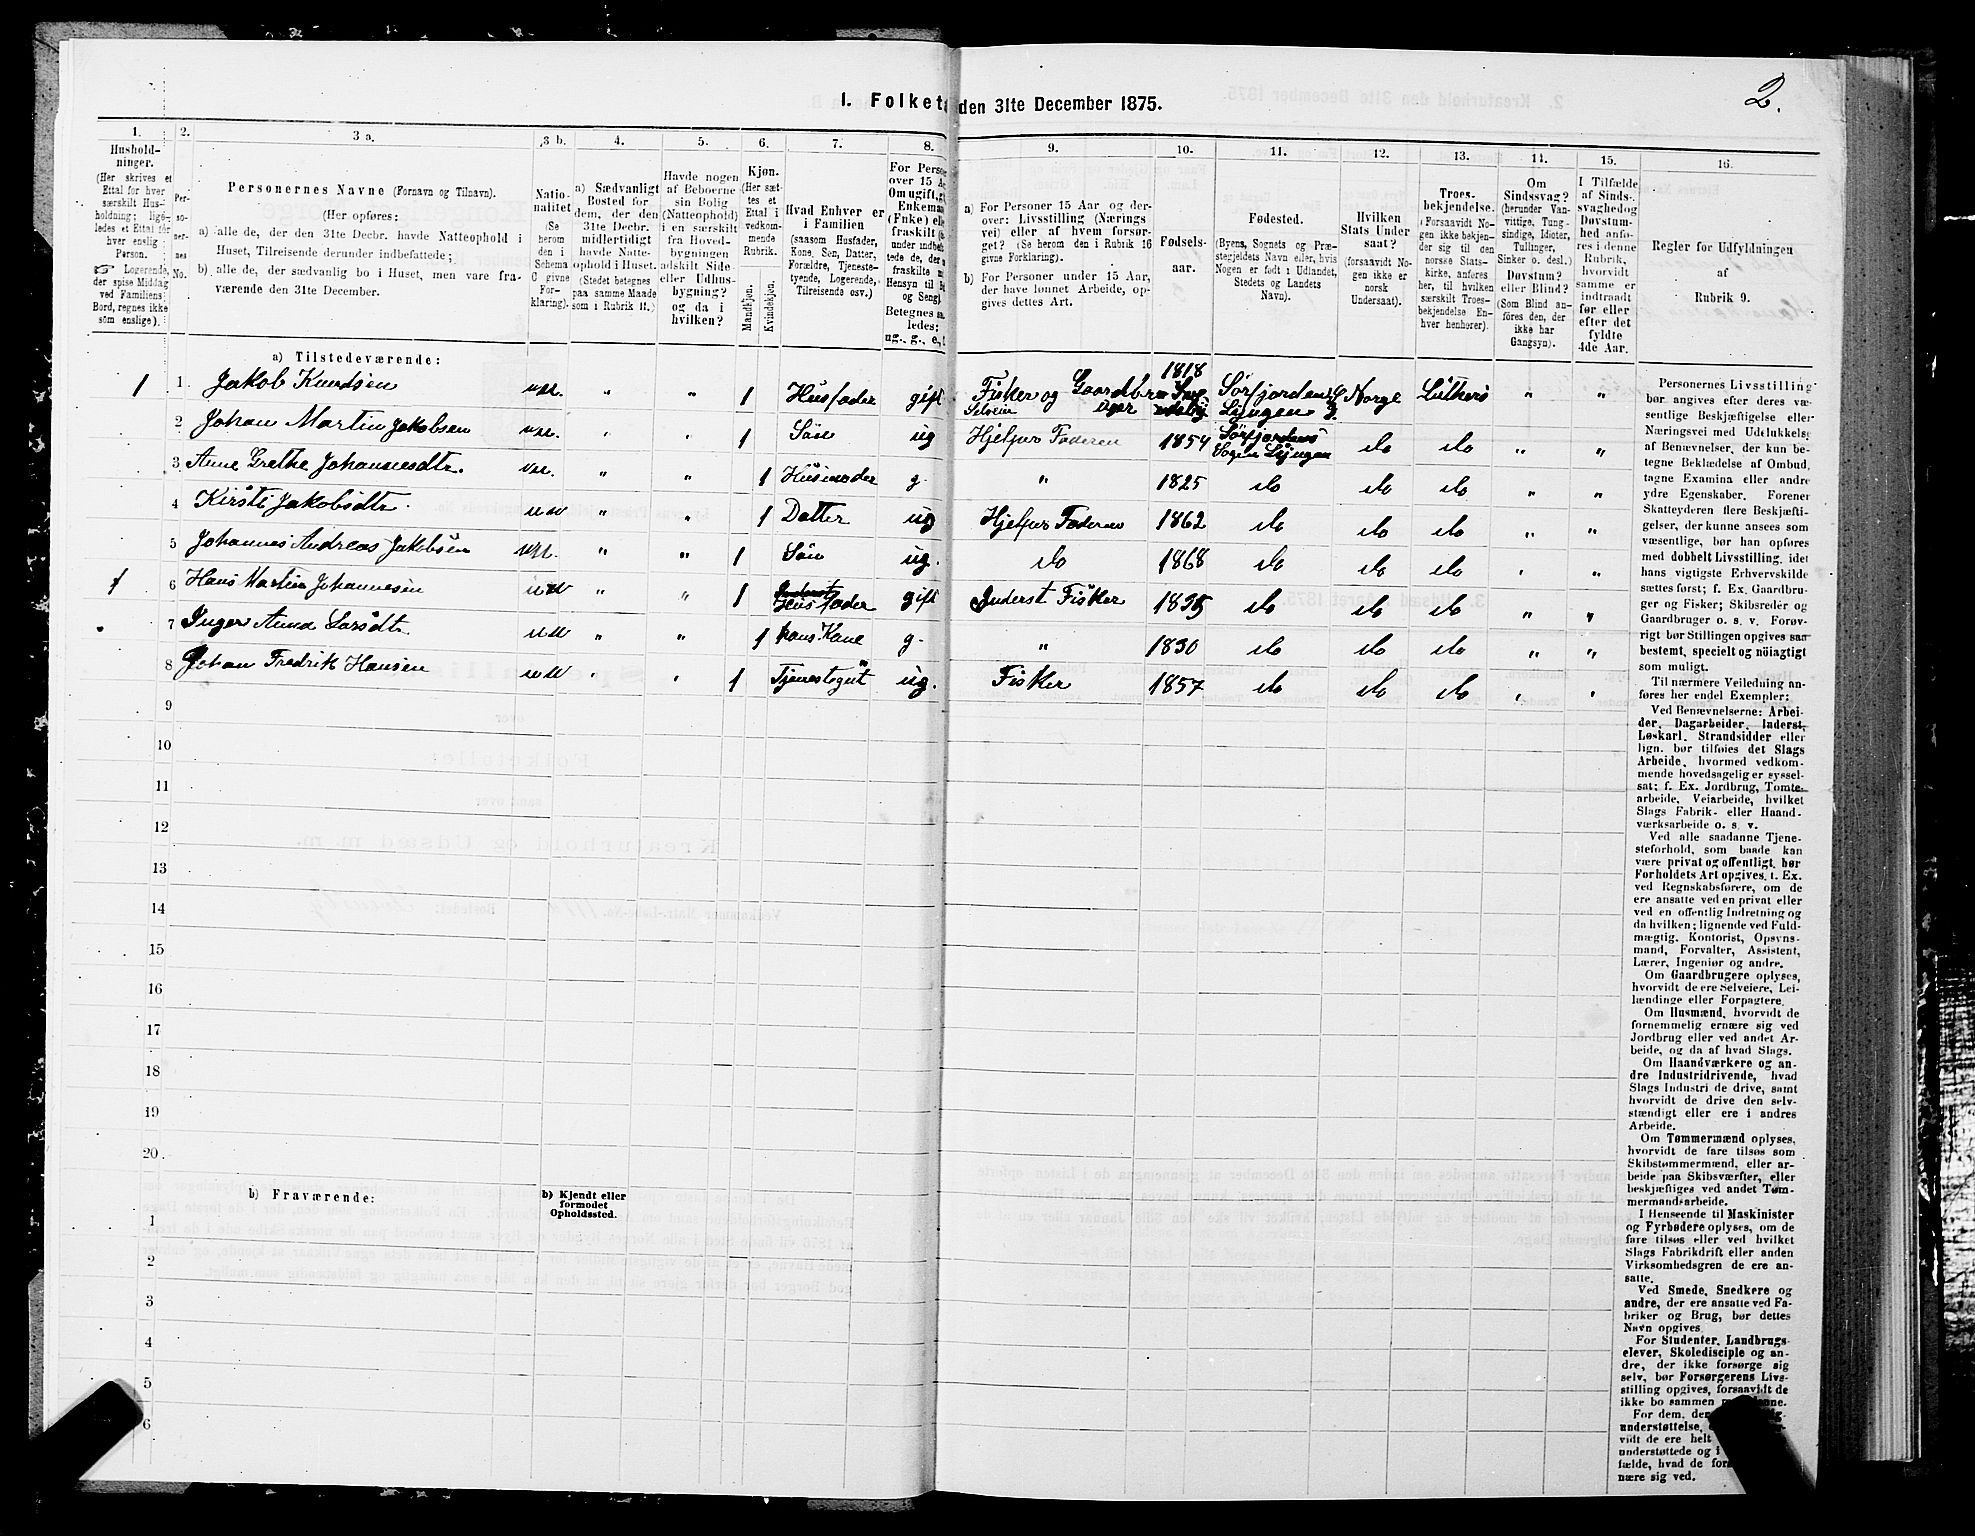 2.
1. Folket den 31te December 1875.
1. 2. 3 a. 3 b. 4. 5. 6. 7. 8. 9. 10. 11. 12. 13. 14. 15. 16.
Hushold-
ninger.
(Her skrives et
Ettal for hver
særskilt Hus-
holdning; lige-
ledes et Ettal for
hver enslig
Person.
☞ Logerende,
der spise Middag
ved Familiens
Bord, regnes ikke
som enslige).
Per-
so-
ner-
nes
No.
Personernes Navne (Fornavn og Tilnavn).
(Her opføres:
a) alle de, der den 31te Decbr. havde Natteophold i
Huset, Tilreisende derunder indbefattede;
b) alle de, der sædvanlig bo i Huset, men vare fra-
værende den 31te December.
Natio-
nalitet
(Se
herom
den i
Schema
C givne
For-
klaring).
a) Sædvanligt
Bosted for
dem, der den
31te Decbr.
midlertidigt
havde Natte-
ophold i Huset.
(Stedet betegnes
paa samme Maade
som i Rubrik 11.)
Havde nogen
af Beboerne
sin Bolig
(Natteophold)
i en særskilt
fra Hoved-
bygningen
adskilt Side-
eller Udhus-
bygning?
og da i
hvilken?
Kjøn.
(Her sæt-
tes et
Ettal i
vedkom-
mende
Rubrik.
Mandkjøn.
Kvindekjøn.
Hvad Enhver er
i Familien
(saasom Husfader,
Kone, Søn, Datter,
Forældre, Tjeneste-
tyende, Logerende,
Tilreisende osv.)
For Perso
over 15 A
Omugift, g
Enkema
(Fnke) el
fraskilt (
under indbe
tede de, der
fraskilte
Hensyn til B
og Seng).
Betegnes sa
ledes:
ug., g., e., f
a) For Personer 15 Aar og der-
over: Livsstilling (Nærings
vei) eller af hvem forsør-
get? (Se herom den i Rubrik 16
givne Forklaring).
b) For Personer under 15 Aar,
der have lønnet Arbeide, op-
gives dettes Art.
Fødsels-
aar.
Fødested.
(Byens, Sognets og Præ-
stegjeldets Navn eller, hvis
Nogen er født i Udlandet,
Stedets og Landets
Navn).
Hvilken
Stats Under
saat?
(forsaavidt No-
gen ikke er
norsk
Undersaat).
Troes-
bekjendelse.
(Forsaavidt No-
gen ikke bekjen-
der sig til den
norske Stats-
kirke, anføres
her, til hvilken
særskilt Troes-
bekjendelse En-
hver henhører).
Om
Sindssvag?
(herunder Van-
vittige, Tung-
sindige, Idioter,
Tullinger,
Sinker o. desl.)
Døvstum?
eller Blind?
(Som Blind an-
føres den, der
ikke har
Gangsyn).
I Tilfælde
af Sinds-
svaghed og
Døvstum-
hed anfø-
res i denne
Rubrik,
hvorvidt
samme er
indtraadt
før eller
efter det
fyldte
4de Aar.
Regler for Udfyldningen
af
Rubrik 9.
a) Tilstedeværende:
1 1. Jakob Knudsen nr. " " 1 Husfader gift Fisker og Gaardbr Selveier 1818 Sørfjordens Lyngen Norge Luthers " "
2 Johan Martin Jakobsen nr. " " 1 Søn ug Hjelper Faderen 1854 Sørfjordens Sogn Lyngen do do " "
3 Anne Grethe Johannesdtr. nr. " " 1 Husmoder g. " 1825 do do do " "
4 Kirsti Jakobsdtr. " " 1 Datter ug Hjelper Faderen 1862 do do do " "
5 Johannes Andreas Jakobsen nr. " " 1 Søn ug. do 1868 do do do " "
1 6 Hans Martin Johannesen " " 1 Husfader gift Inderst Fisker 1835 do do do " "
7 Inger Anna Larsdtr " " 1 hans Kone g. " 1830 do do do " "
8 Johan Fredrik Hansen " " 1 Tjenestegut ug. Fisker 1857 do do do " "
9
10
11
12
13
14
15
16
17
18
19
20
b) Fraværende:
b) Kjendt eller
formodet
Opholdssted.
1
2
3
4
5
6
Personernes Livsstilling
bør angives efter deres væ-
sentlige Beskjæftigelse eller
Næringsvei med Udelukkelse
af Benævnelser, der kun be-
tegne Beklædelse af Ombud,
tagne Examina eller andre
ydre Egenskaber. Forener
Skatteyderen flere Beskjæfti-
gelser, der kunne ansees som
væsentlige, bør han opføres
med dobbelt Livsstilling, idet
hans vigtigste Erhvervskilde
sættes først; f. Ex. Gaardbru-
ger og Fisker; Skibsreder og
Gaardbruger o. s. v. Forøv-
rigt bør Stillingen opgives saa
bestemt, specielt og nøiagtigt
som muligt.
Til nærmere Veiledning an-
føres her endel Exempler:
Ved Benævnelserne: Arbei-
der, Dagarbeider, Inderst,
Løskarl, Strandsidder eller
lign. bør tilføies det Slags
Arbeide, hvormed vedkom-
mende hovedsagelig er syssel-
sat; f. Ex. Jordbrug, Tomte-
arbeide, Veiarbeide, hvilket
Slags Fabrik- eller Haand-
værksarbeide o. s. v.
Ved alle saadanne Tjene-
steforhold, som baade kan
være privat og offentligt, bør
Forholdets Art opgives, t. Ex.
ved Regnskabsførere, om de
ere ansatte ved en privat eller
ved en offentlig Indretning og
da hvilken; lignende ved Fuld-
mægtig, Kontorist, Opsyns-
mand, Forvalter, Assistent,
Lærer, Ingeniør og andre.
Om Gaardbrugere oplyses,
hvorvidt de ere Selveiere, Lei-
lændinge eller Forpagtere.
Om Husmænd, hvorvidt de
fornemmelig ernære sig ved
Jordbrug eller ved andet Ar-
beide, og da af hvad Slags.
Om Haandværkere og an-
dre Industridrivende, hvad
Slags Industri de drive, samt
hvorvidt de drive den selv-
stændigt eller ere i andres
Arbeide.
Om Tømmermænd oplyses,
hvorvidt de fare tilsøs som
Skibstømmermænd, eller ar-
beide paa Skibsværfter, eller
beskjæftiges ved andet Tøm-
mermandsarbeide.
I Henseende til Maskinister
og Fyrbødere oplyses, om de
fare tilsøs eller ved hvilket
Slags Fabrikdrift eller anden
Virksomhedsgren de ere an-
satte.
Ved Smede, Snedkere og
andre, der ere ansatte ved Fa-
briker og Brug, bør dettes
Navn opgives.
For Studenter, Landbrugs-
elever, Skoledisciple og an-
dre, der ikke forsørge sig
selv, bør Forsørgerens Livs-
stilling opgives, forsaavidt de
ikke bo sammen
For dem, der
understøttelse,
vidt de ere helt
understøttede og i
fælde, hvad de for
nære sig ved.